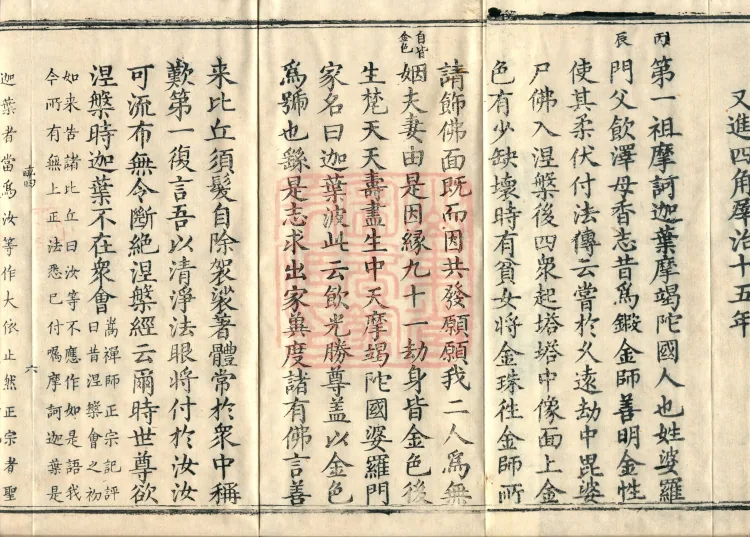 又進四角犀治十五年
丙
第一祖摩訶迦葉摩竭陀國人也姓婆羅
辰
門父飲澤母香志昔爲鍛金師善明金性
使其柔伏付法傳云嘗於久遠劫中毘婆
尸佛入涅槃後四衆起塔塔中像面上金
色有少缺壞時有貧女將金珠徃金師所
請飾佛面既而因共發願願我二人爲無
自皆
金色
姻夫妻由是因縁九十一劫身皆金色後
生梵天天壽盡生中天摩竭陀國婆羅門
家名曰迦葉波此云飲光勝尊盖以金色
爲號也繇是志求出家兾度諸有佛言善
来比丘須髮自除袈裟著體常於衆中稱
歎第一復言吾以清淨法眼將付於汝汝
可流布無令斷絕涅槃經云爾時世尊欲
涅槃時迦葉不在衆會
嵩禪師正宗記評
曰昔涅槃會之初
如来告諸比丘曰汝等不應作如是語我
今所有無上正法悉已付嘱摩訶迦葉是
六
迦葉者當爲汝等作大依止然正宗者聖